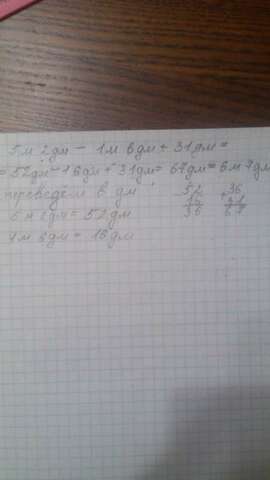 5 м 2 дм - 1 м 6 дм + 31 дм =
= 52 дм - 16 дм + 31 дм = 67 дм = 6 м 7 дм
переведём в дм
5 м 2 дм = 52 дм
1 м 6 дм = 16 дм
- 52
16
36
+ 36
31
67